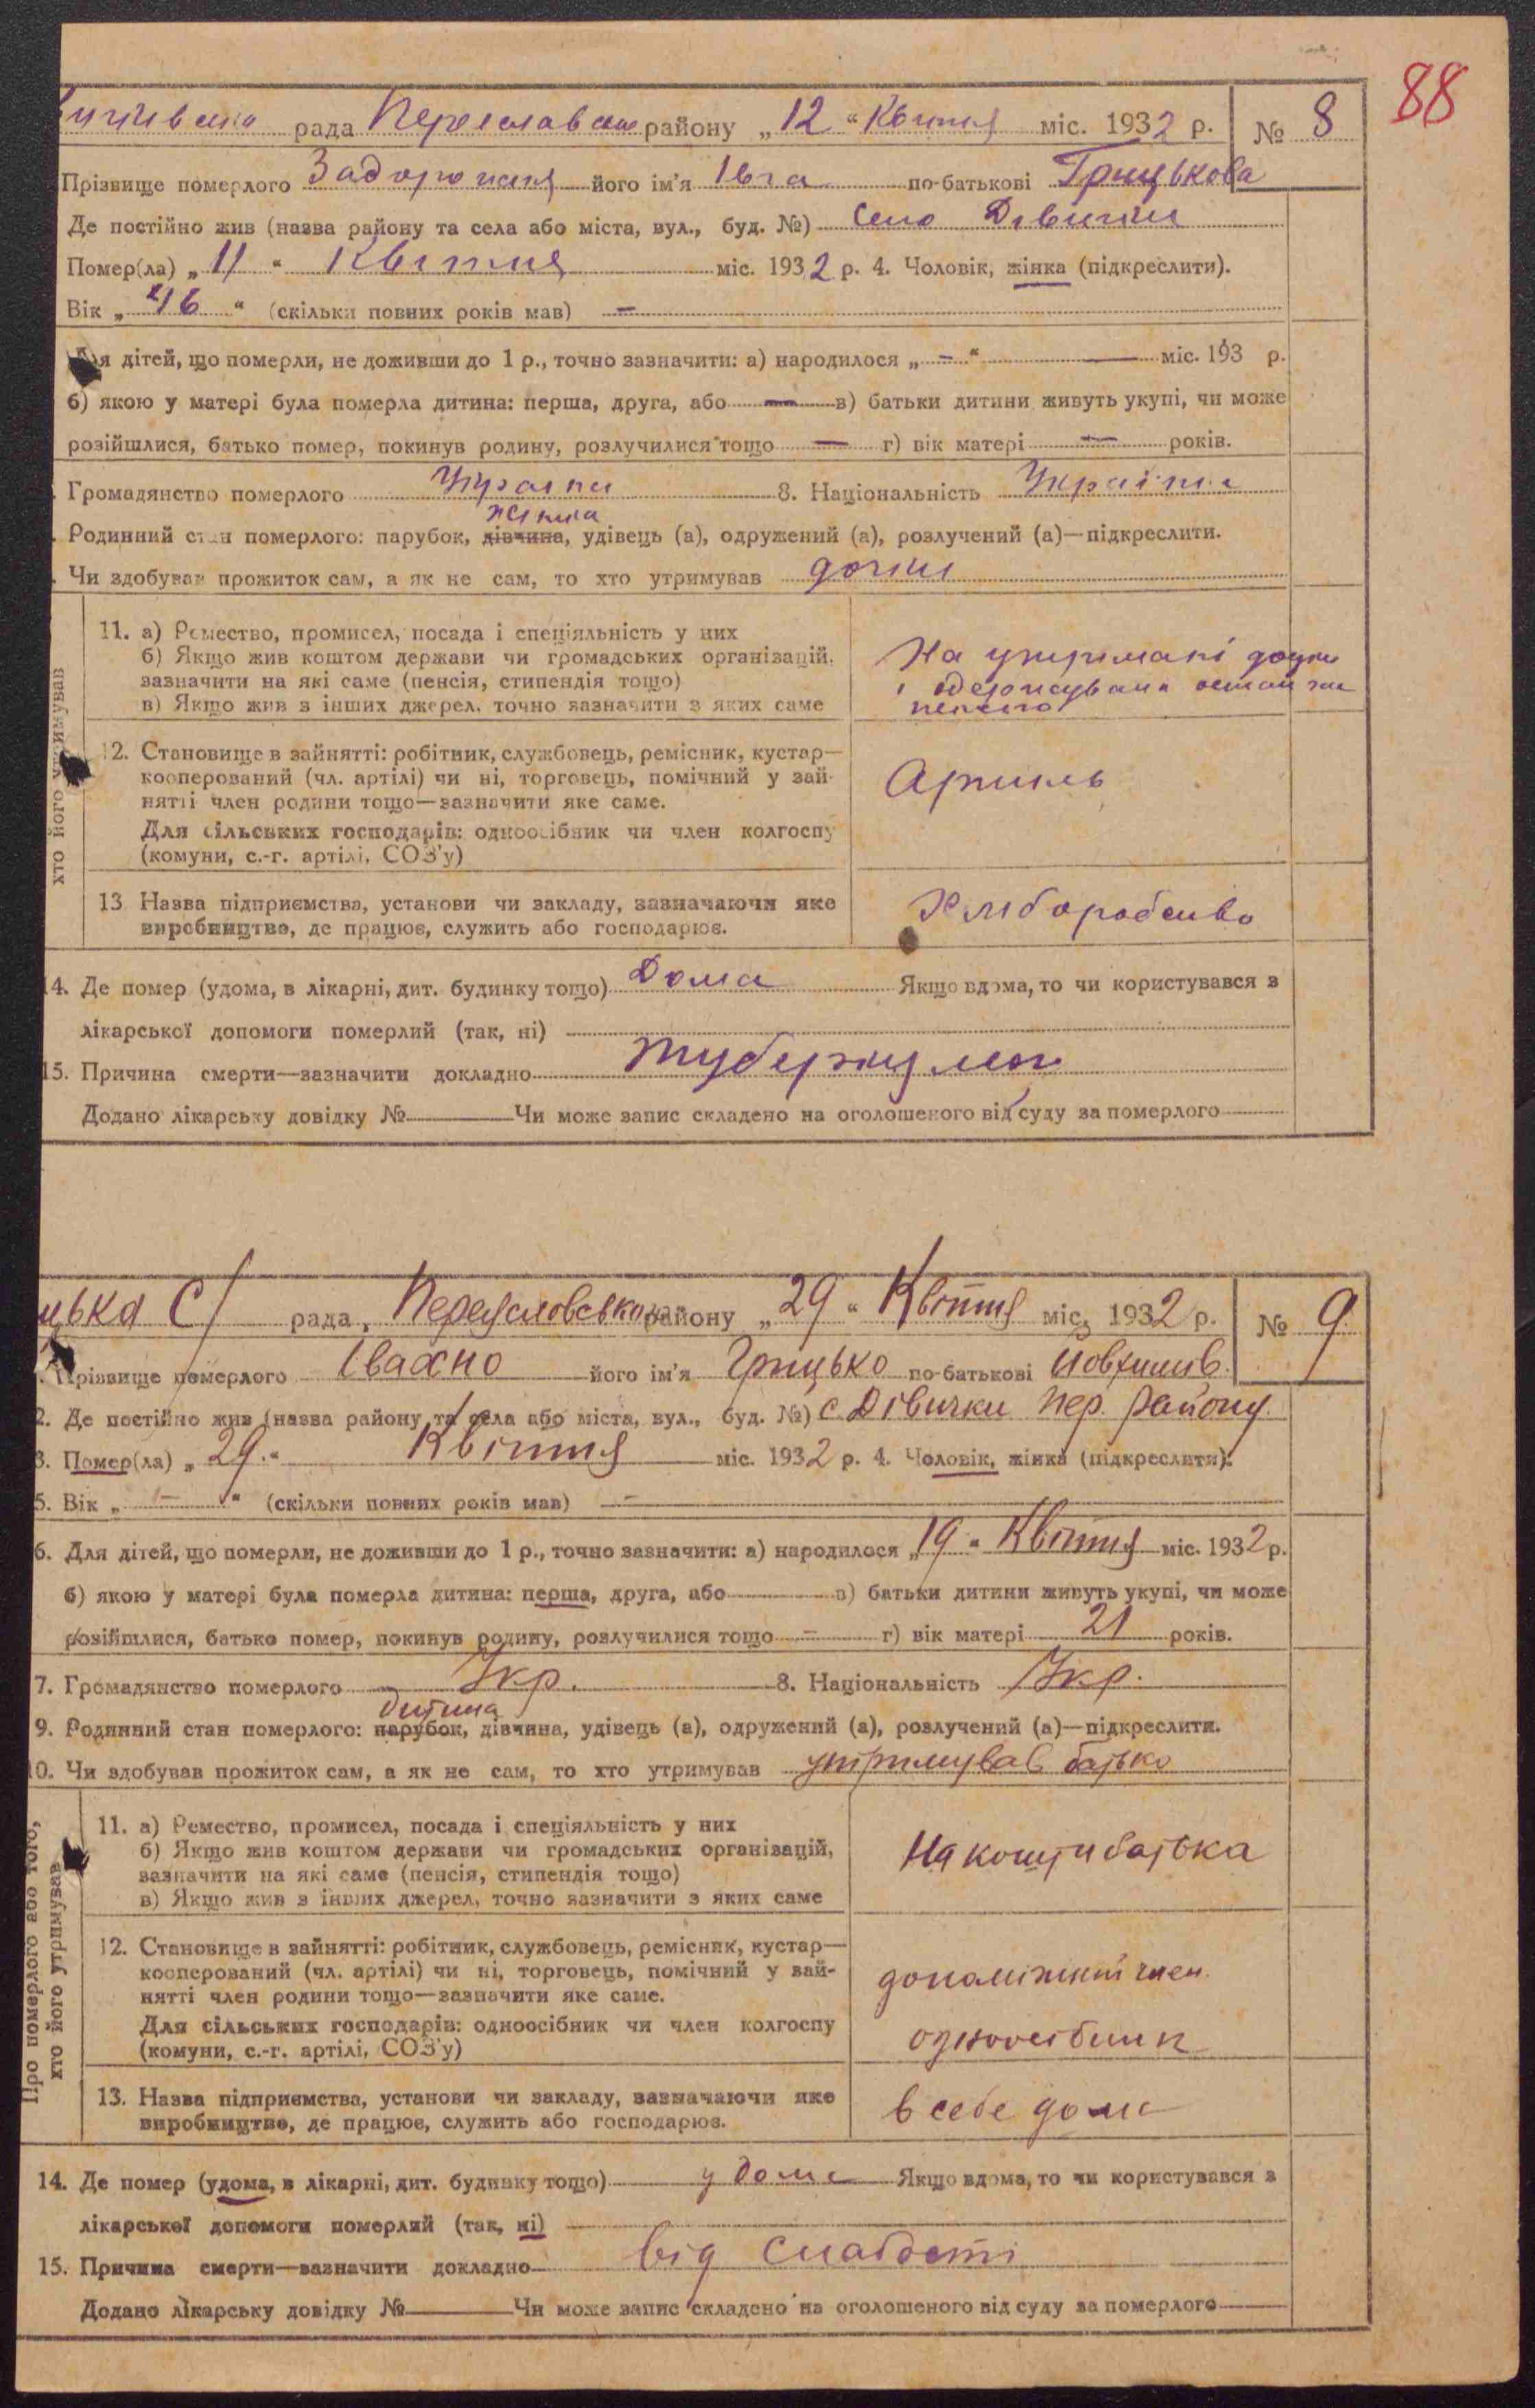 88
рада Переславськ району „ 12 “ Квітня міс. 1932 р. № 8
Прізвище померлого Задорожня його ім’я Івга по-батькові Грицькова
Де постійно жив (назва району та села або міста, вул., буд. №) село Дівички
Помер(ла) „ 11 “ Квітня міс. 1932 р. 4. Чоловік, жінка (підкреслити).
Вік „ 46 “ (скільки повних років мав) —
Для дітей, що померли, не доживши до 1 р., точно зазначити: а) народилося „ — “ — міс. 193 р.
б) якою у матері була померла дитина: перша, друга, або — в) батьки дитини живуть укупі, чи може
розійшлися, батько помер, покинув родину, розлучилися тощо — г) вік матері — років.
Громадянство померлого 8. Національність
жінка
Родинний стан померлого: парубок, дівчина, удівець (а), одружений (а), розлучений (а)—підкреслити.
Чи здобував прожиток сам, а як не сам, то хто утримував дочки
хто його утримував
11. а) Ремество, промисел, посада і спеціяльність у них
б) Якщо жив коштом держави чи громадських організацій,
зазначити на які саме (пенсія, стипендія тощо)
в) Якщо жив з інших джерел, точно зазначити з яких саме
На утримані дочки
і
12. Становище в зайнятті: робітник, службовець, ремісник, кустар—
кооперований (чл. артілі) чи ні, торговець, помічний у зай-
нятті член родини тощо—зазначити яке саме.
Для сільських господарів: одноосібник чи член колгоспу
(комуни, с.-г. артілі, СОЗ’у)
Артиль
13 Назва підприємства, установи чи закладу, зазначаючи яке
виробництво, де працює, служить або господарює.
Хліборобство
14. Де помер (удома, в лікарні, дит. будинку тощо) Дома Якщо вдома, то чи користувався з
лікарської допомоги померлий (так, ні)
15. Причина смерти—зазначити докладно
Додано лікарську довідку № Чи може запис складено на оголошеного від суду за померлого
цька С/ рада, району „ 29 “ Квітня міс. 1932 р. № 9.
Прізвище померлого Івахно його ім’я Грицько по-батькові Йовхимів.
2. Де постійно жив (назва району та села або міста, вул., буд. №) с. Дівички Пер. району
3. Помер(ла) „ 29. “ Квітня міс. 1932 р. 4. Чоловік, жінка (підкреслити).
5. Вік „ — “ (скільки повних років мав) —
6. Для дітей, що померли, не доживши до 1 р., точно зазначити: а) народилося „ 19 “ Квітня міс. 1932 р.
б) якою у матері була померла дитина: перша, друга, або в) батьки дитини живуть укупі, чи може
розійшлися, батько помер, покинув родину, розлучилися тощо — г) вік матері 21 років.
7. Громадянство померлого Укр. 8. Національність Укр.
дитина
9. Родинний стан померлого: парубок, дівчина, удівець (а), одружений (а), розлучений (а)—підкреслити.
10. Чи здобував прожиток сам, а як не сам, то хто утримував утримував батько
Про померлого або того,
хто його утримував
11. а) Ремество, промисел, посада і спеціяльність у них
б) Якщо жив коштом держави чи громадських організацій,
зазначити на які саме (пенсія, стипендія тощо)
в) Якщо жив з інших джерел, точно зазначити з яких саме
На кошти батька
12. Становище в зайнятті: робітник, службовець, ремісник, кустар—
кооперований (чл. артілі) чи ні, торговець, помічний у зай-
нятті член родини тощо—зазначити яке саме.
Для сільських господарів: одноосібник чи член колгоспу
(комуни, с.-г. артілі, СОЗ’у)
член.
одноосібник
13. Назва підприємства, установи чи закладу, зазначаючи яке
виробництво, де працює, служить або господарює.
в себе дома
14. Де помер (удома, в лікарні, дит. будинку тощо) у дома Якщо вдома, то чи користувався з
лікарської допомоги померлий (так, ні)
15. Причина смерти—зазначити докладно від слабості
Додано лікарську довідку № Чи може запис складено на оголошеного від суду за померлого